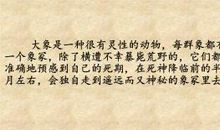 大象是一种很有灵性的动物，每群象都有
一个象冢，除了横遭不幸暴毙荒野的，它们都
准确地预感到自己的死期，在死神降临前的半
月左右，会独自走到遥远而又神秘的象冢里去